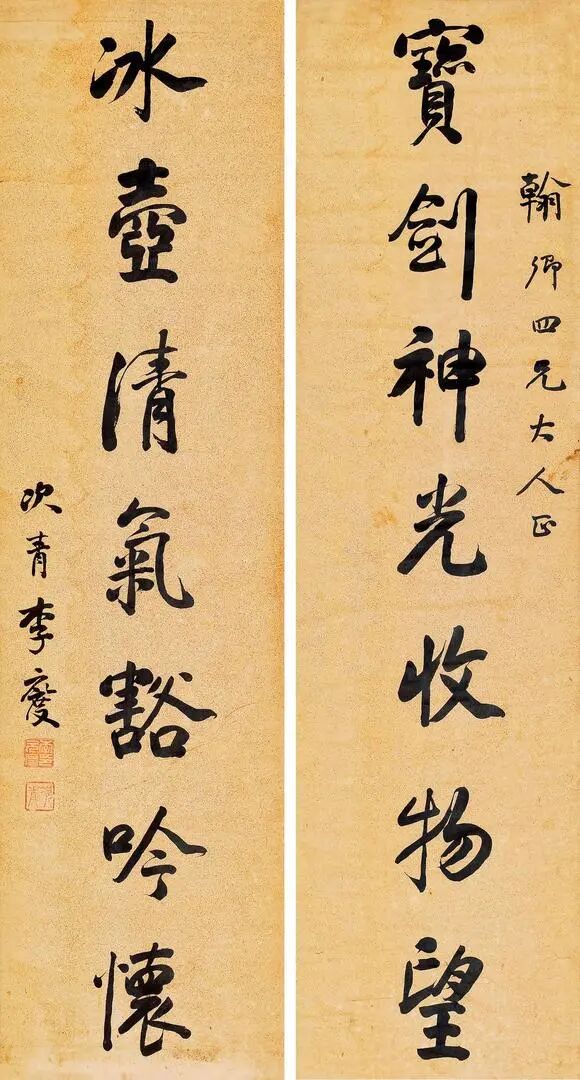 翰卿四兄大人正
寶劍神光收物望
冰壺清氣豁吟懷
次青李度